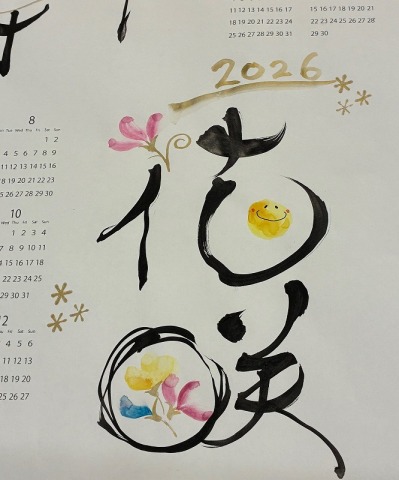 11 12 13 14 15 16 17
18 19 20 21 22 23 24
25 26 27 28 29 30 31
15 16 17 18 19 20 21
22 23 24 25 26 27 28
29 30
2026
花
咲
8
Tue Wed Thu Fri Sat Sun
1 2
4 5 6 7 8 9
11 12 13 14 15 16
18 19 20 21 22 23
25 26 27 28 29 30
10
Wed Thu Fri Sat Sun
1 2 3 4
7 8 9 10 11
14 15 16 17 18
22 23 24 25
29 30 31
12
Thu Fri Sat Sun
3 4 5 6
10 11 12 13
17 18 19 20
25 26 27